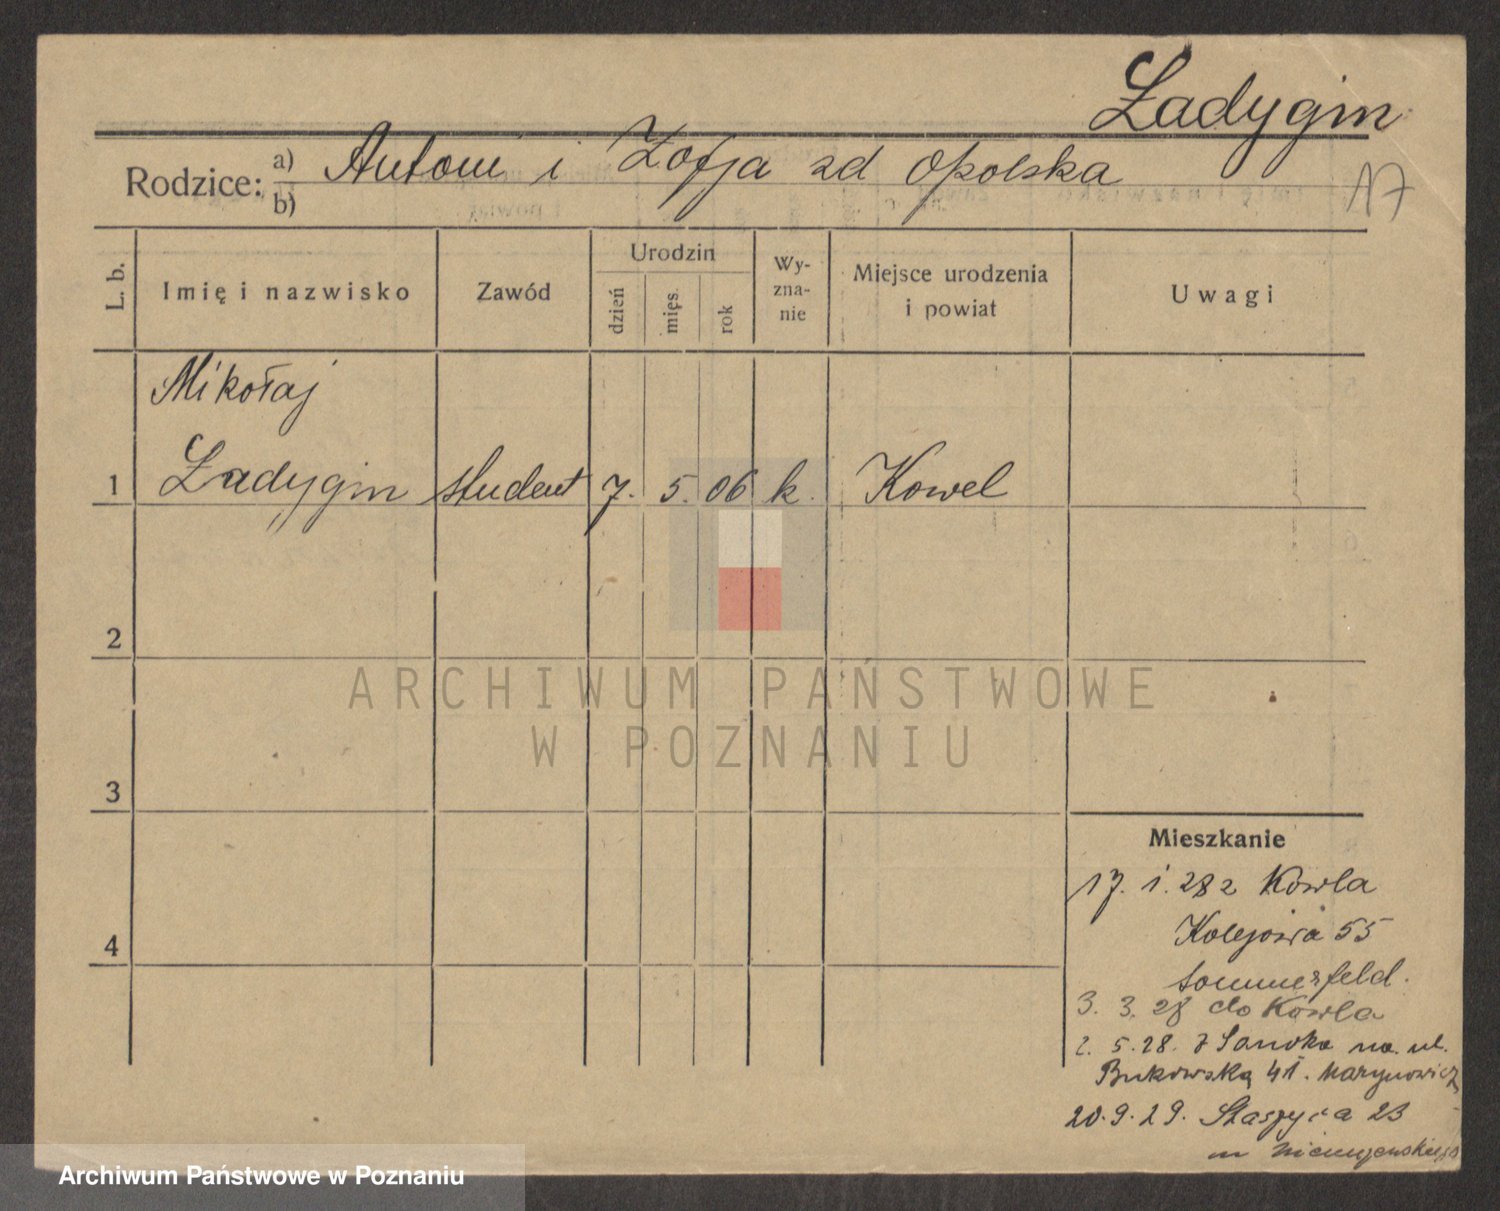 Ładygin
Rodzice: a) Antoni i Zofja zd Opolska
b)
17
L. b.
Imię i nazwisko
Zawód
Urodzin
dzień
mięs.
rok
Wy-
zna-
nie
Miejsce urodzenia
i powiat
Uwagi
Mikołaj
1 Ładygin student 7. 5. 06 k. Kowel
2
3
4
ARCHIWUM PAŃSTWOWE
W POZNANIU
Mieszkanie
17. 1. 28 z Kowla
Kolejowa 55
Sommerfeld.
3. 3. 28 do Kowla
2. 5. 28. z Sanoka na ul.
Bukowską 41.
20. 9. 29. Staszyca 23
Archiwum Państwowe w Poznaniu